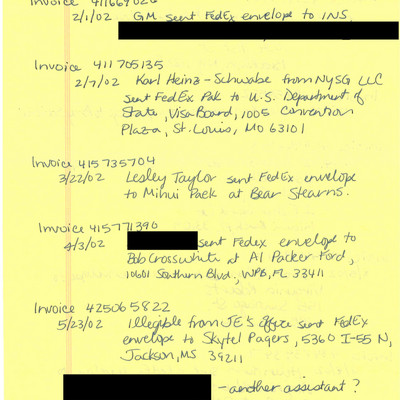 Invoice 411669026
2/1/02 GM sent FedEx envelope to INS,
Invoice 411705135
2/7/02 Karl Heinz-Schwabe from NYSG LLC
sent FedEx Pak to U.S. Department of
State, Visa Board, 1005 Convention
Plaza, St. Louis, MO 63101
Invoice 415735704
3/22/02 Lesley Taylor sent FedEx envelope
to Mihui Pack at Bear Stearns.
Invoice 415771390
4/3/02 sent Fedex envelope to
Bob Crosswhite at Al Packer Ford,
10601 Southern Blvd, WPB, FL 33411
Invoice 425065822
5/23/02 illegible from JE's office sent FedEx
envelope to Skytel Pagers, 5360 I-55 N,
Jackson, MS 39211
- another assistant?